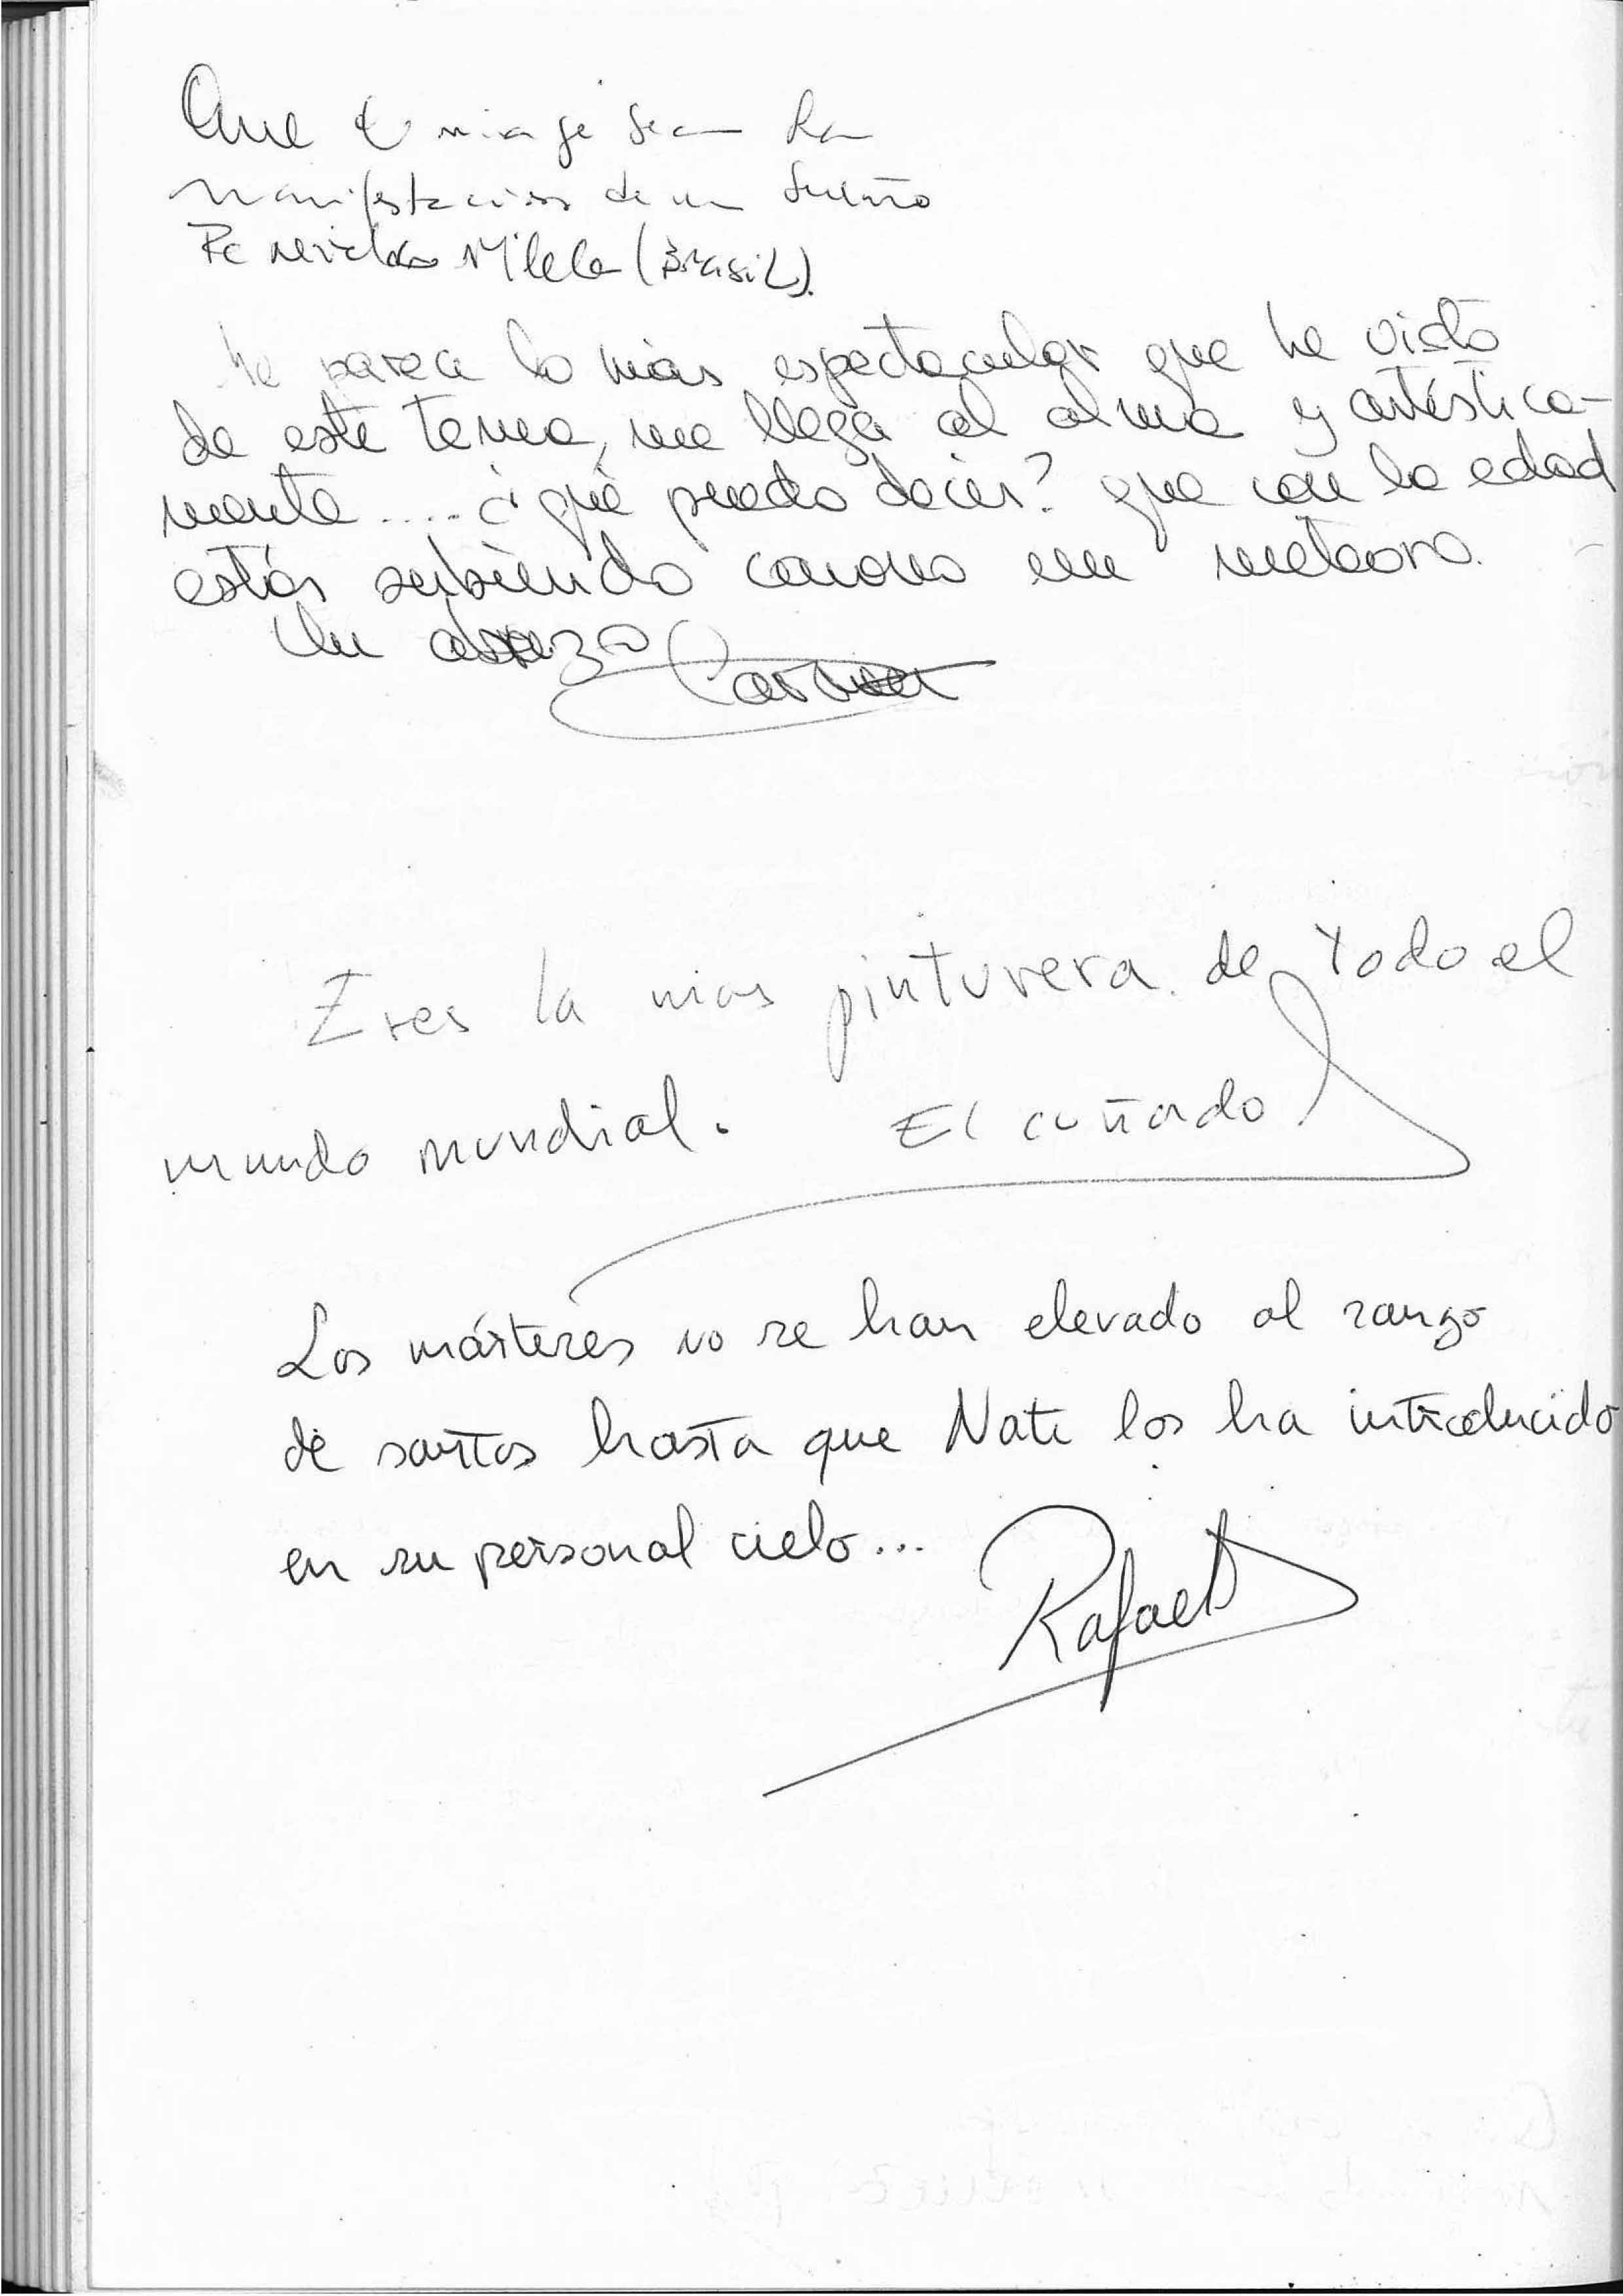 Que tu viaje sea la
manifestacion de un sueño
(Brasil).
Me parece lo más espectacular que he visto
de este tema, me llega al alma y artística-
mente.... ¿qué puedo decir? que con la edad
estás subiendo como un meteoro.
Un abrazo Carmen
Eres la mas pinturera de todo el
mundo mundial. El cuñado
Los mártires no se han elevado al rango
de santos hasta que Nati los ha introducido
en su personal cielo...
Rafael